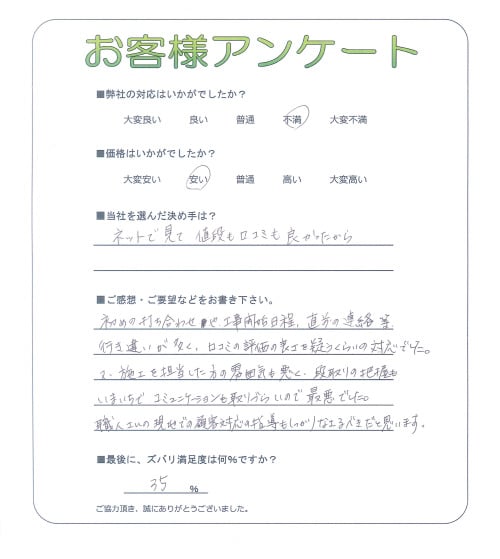 お客様アンケート
■弊社の対応はいかがでしたか？
大変良い 良い 普通 不満 大変不満
■価格はいかがでしたか？
大変安い 安い 普通 高い 大変高い
■当社を選んだ決め手は？
ネットで見て 値段も口コミも良かったから
■ご感想・ご要望などをお書き下さい。
初めの打ち合わせや、工事開始日程、直前の連絡等
行き違いが多く、口コミの評価の良さを疑うくらいの対応でした。
施工を担当した方の雰囲気も悪く、段取りの把握も
いまいちでコミュニケーションも取りづらいので最悪でした。
職人さんの現地での顧客対応の指導もしっかりなさるべきだと思います。
■最後に、ズバリ満足度は何％ですか？
35 ％
ご協力頂き、誠にありがとうございました。